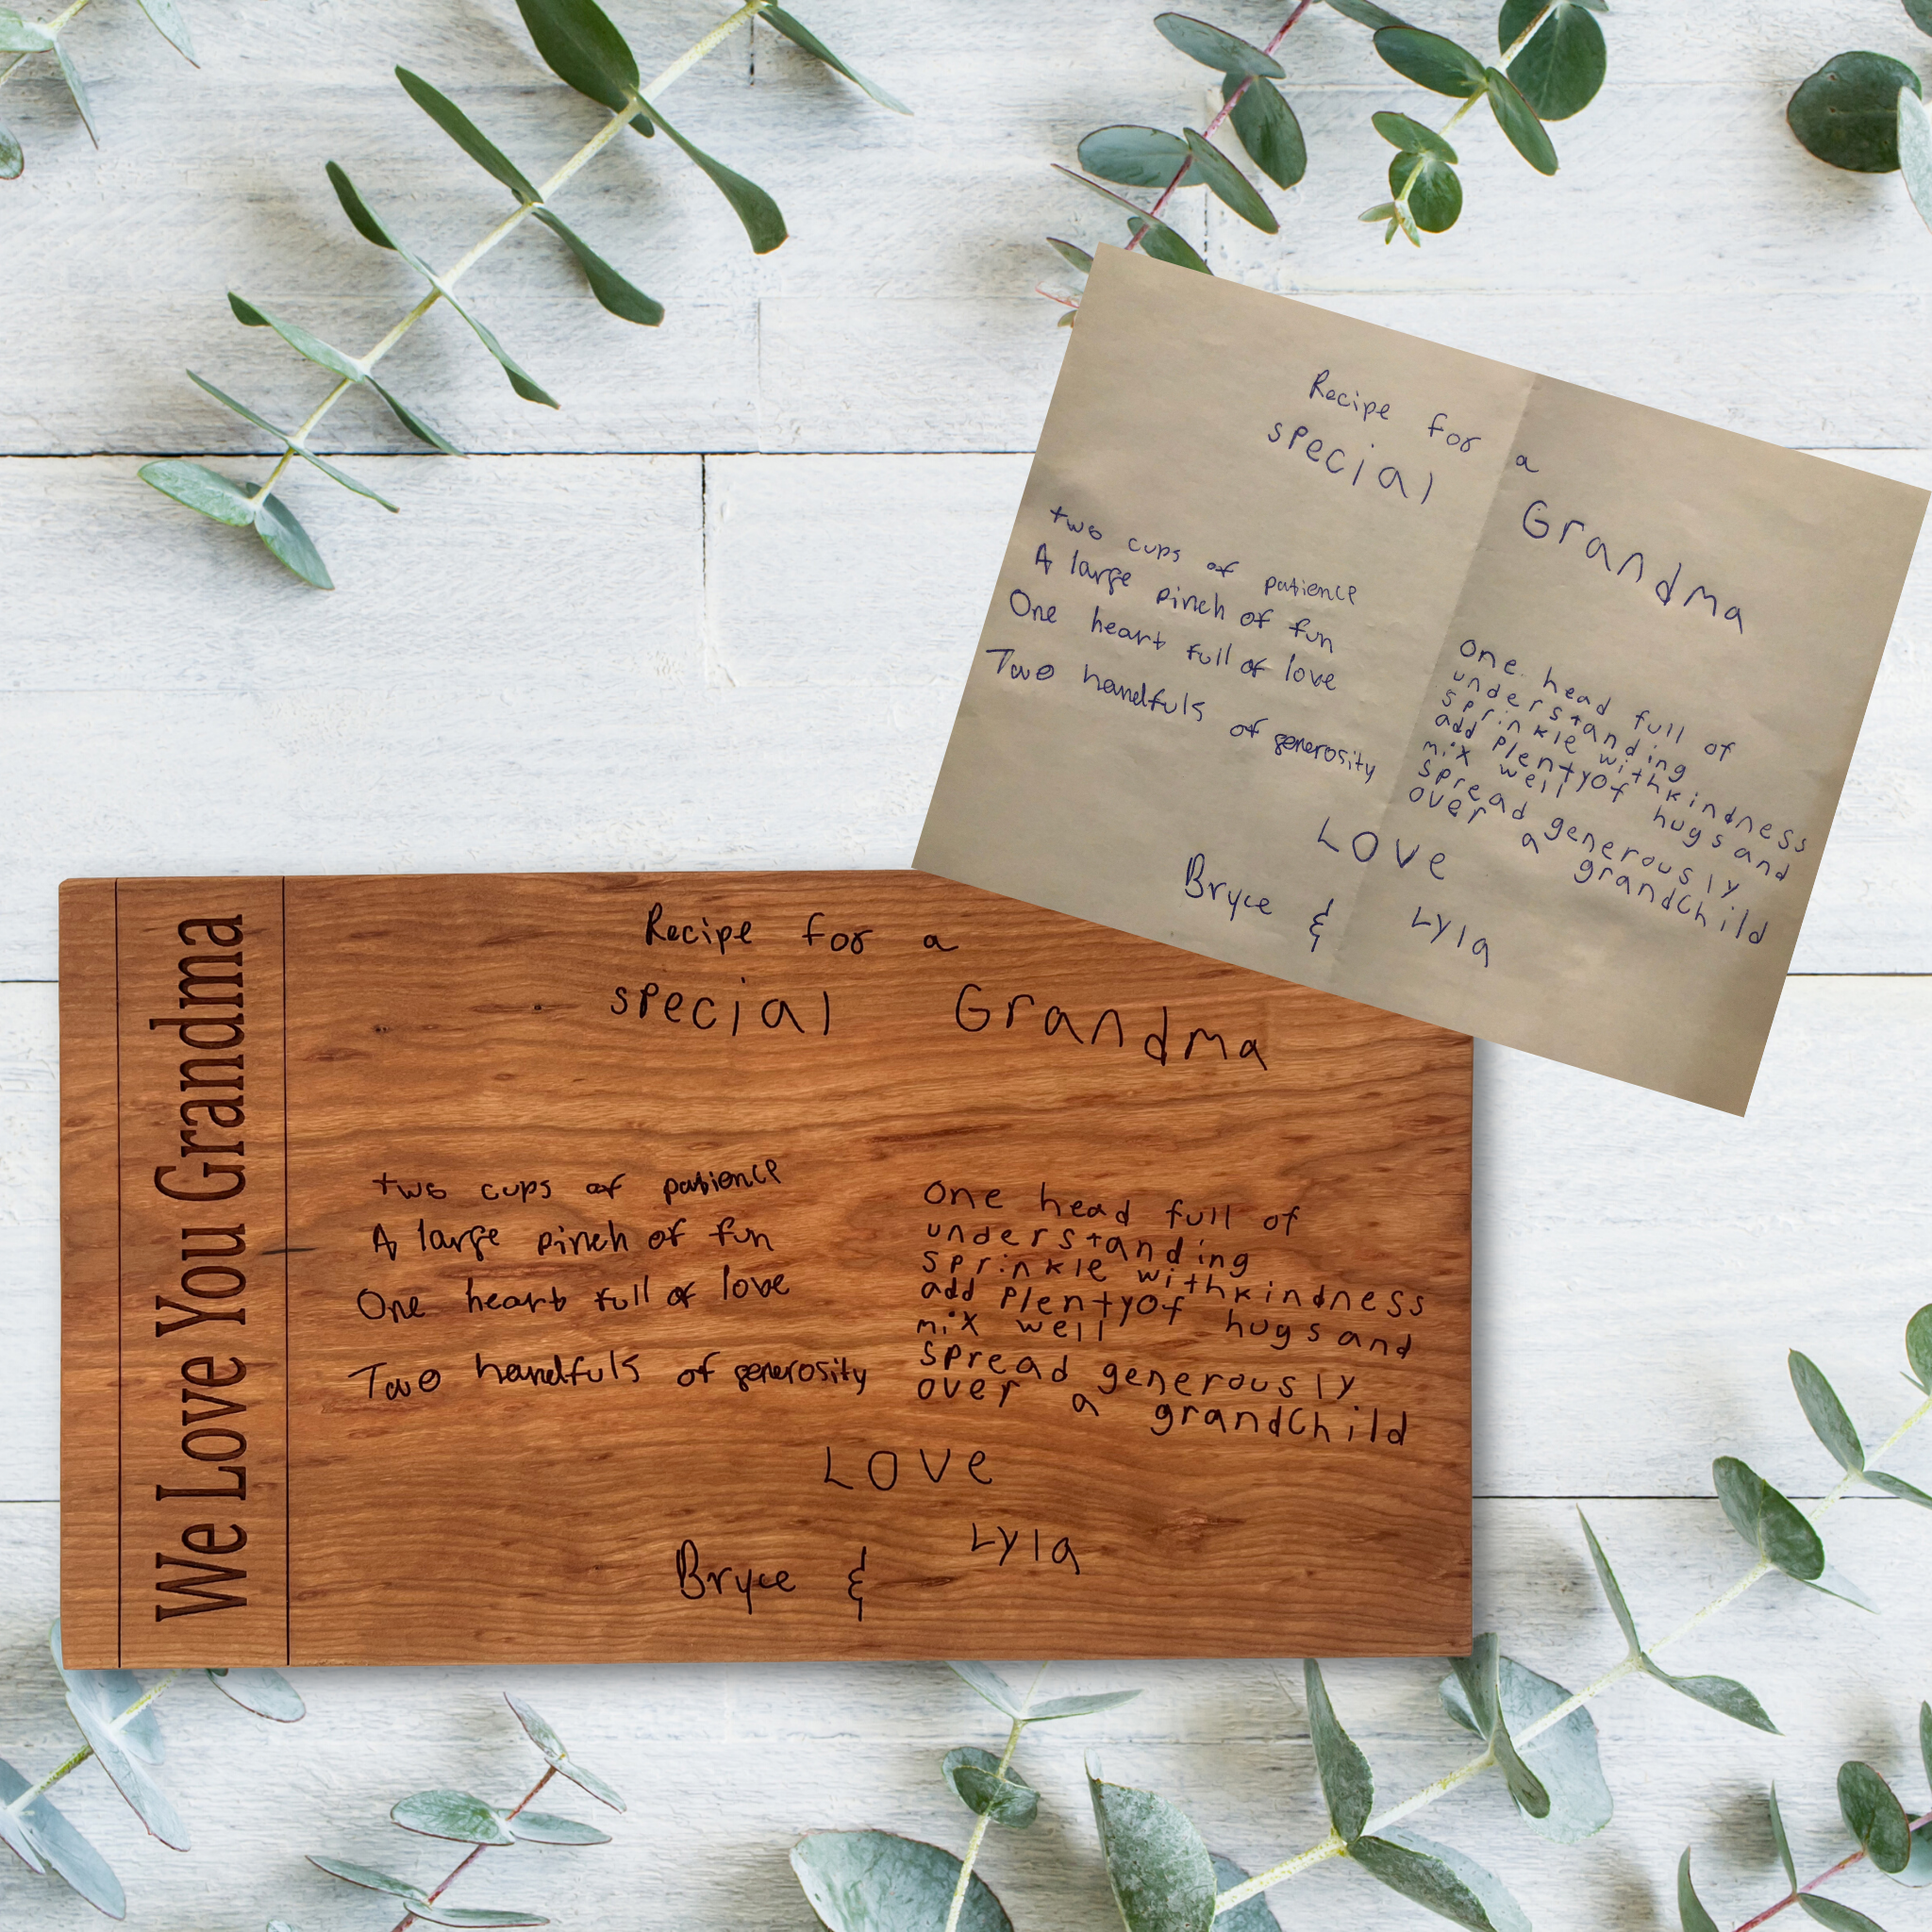 Recipe for a
special Grandma
two cups of patience
A large pinch of fun
One heart full of love
Two handfuls of generosity
One head full of
understanding
sprinkle with kindness
add plenty of hugs and
mix well
spread generously
over a grandchild
LOVe
Bryce & Lyla
We Love You Grandma
Recipe for a
special Grandma
two cups of patience
A large pinch of fun
One heart full of love
Two handfuls of generosity
One head full of
understanding
sprinkle with kindness
add plenty of hugs and
mix well
spread generously
over a grandchild
LOVe
Bryce & Lyla